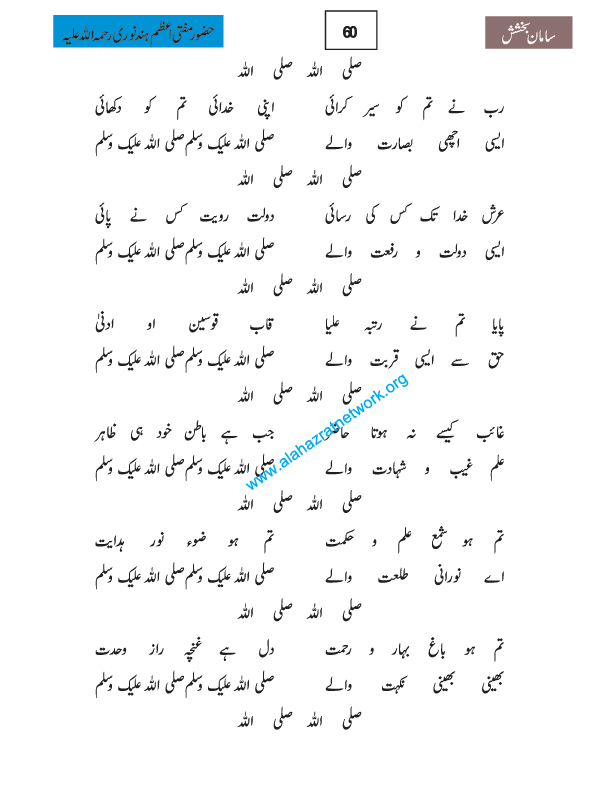 سامان بخشش 60 حضور مفتی اعظم ہند نوری رحمہ اللہ علیہ
صلی اللہ صلی اللہ
رب نے تم کو سیر کرائی اپنی خدائی تم کو دکھائی
ایسی اچھی بصارت والے صلی اللہ علیک وسلم صلی اللہ علیک وسلم
صلی اللہ صلی اللہ
عرش خدا تک کس کی رسائی دولت رویت کس نے پائی
ایسی دولت و رفعت والے صلی اللہ علیک وسلم صلی اللہ علیک وسلم
صلی اللہ صلی اللہ
پایا تم نے رتبہ علیا قاب قوسین او ادنیٰ
حق سے ایسی قربت والے صلی اللہ علیک وسلم صلی اللہ علیک وسلم
صلی اللہ صلی اللہ
غائب کیسے نہ ہوتا حاضر جب ہے باطن خود ہی ظاہر
علم غیب و شہادت والے صلی اللہ علیک وسلم صلی اللہ علیک وسلم
صلی اللہ صلی اللہ
تم ہو شمع علم و حکمت تم ہو ضوء نور ہدایت
اے نورانی طلعت والے صلی اللہ علیک وسلم صلی اللہ علیک وسلم
صلی اللہ صلی اللہ
تم ہو باغ بہار و رحمت دل ہے غنچہ راز وحدت
بھینی بھینی نکہت والے صلی اللہ علیک وسلم صلی اللہ علیک وسلم
صلی اللہ صلی اللہ
www.alahazratnetwork.org